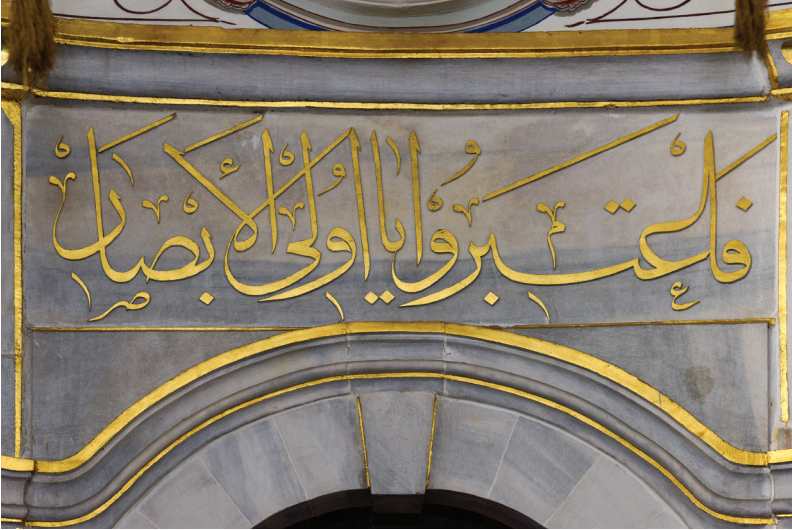 فاعتبروا يا اولى الابصار